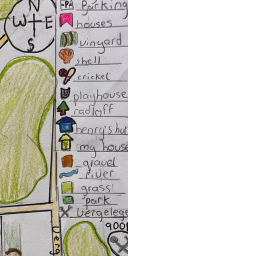 N
W E
S
PA Parking
houses
vinyard
shell
cricket
playhouse
radloff
henry's hut
my house
gravel
river
grass
park
vergelegen